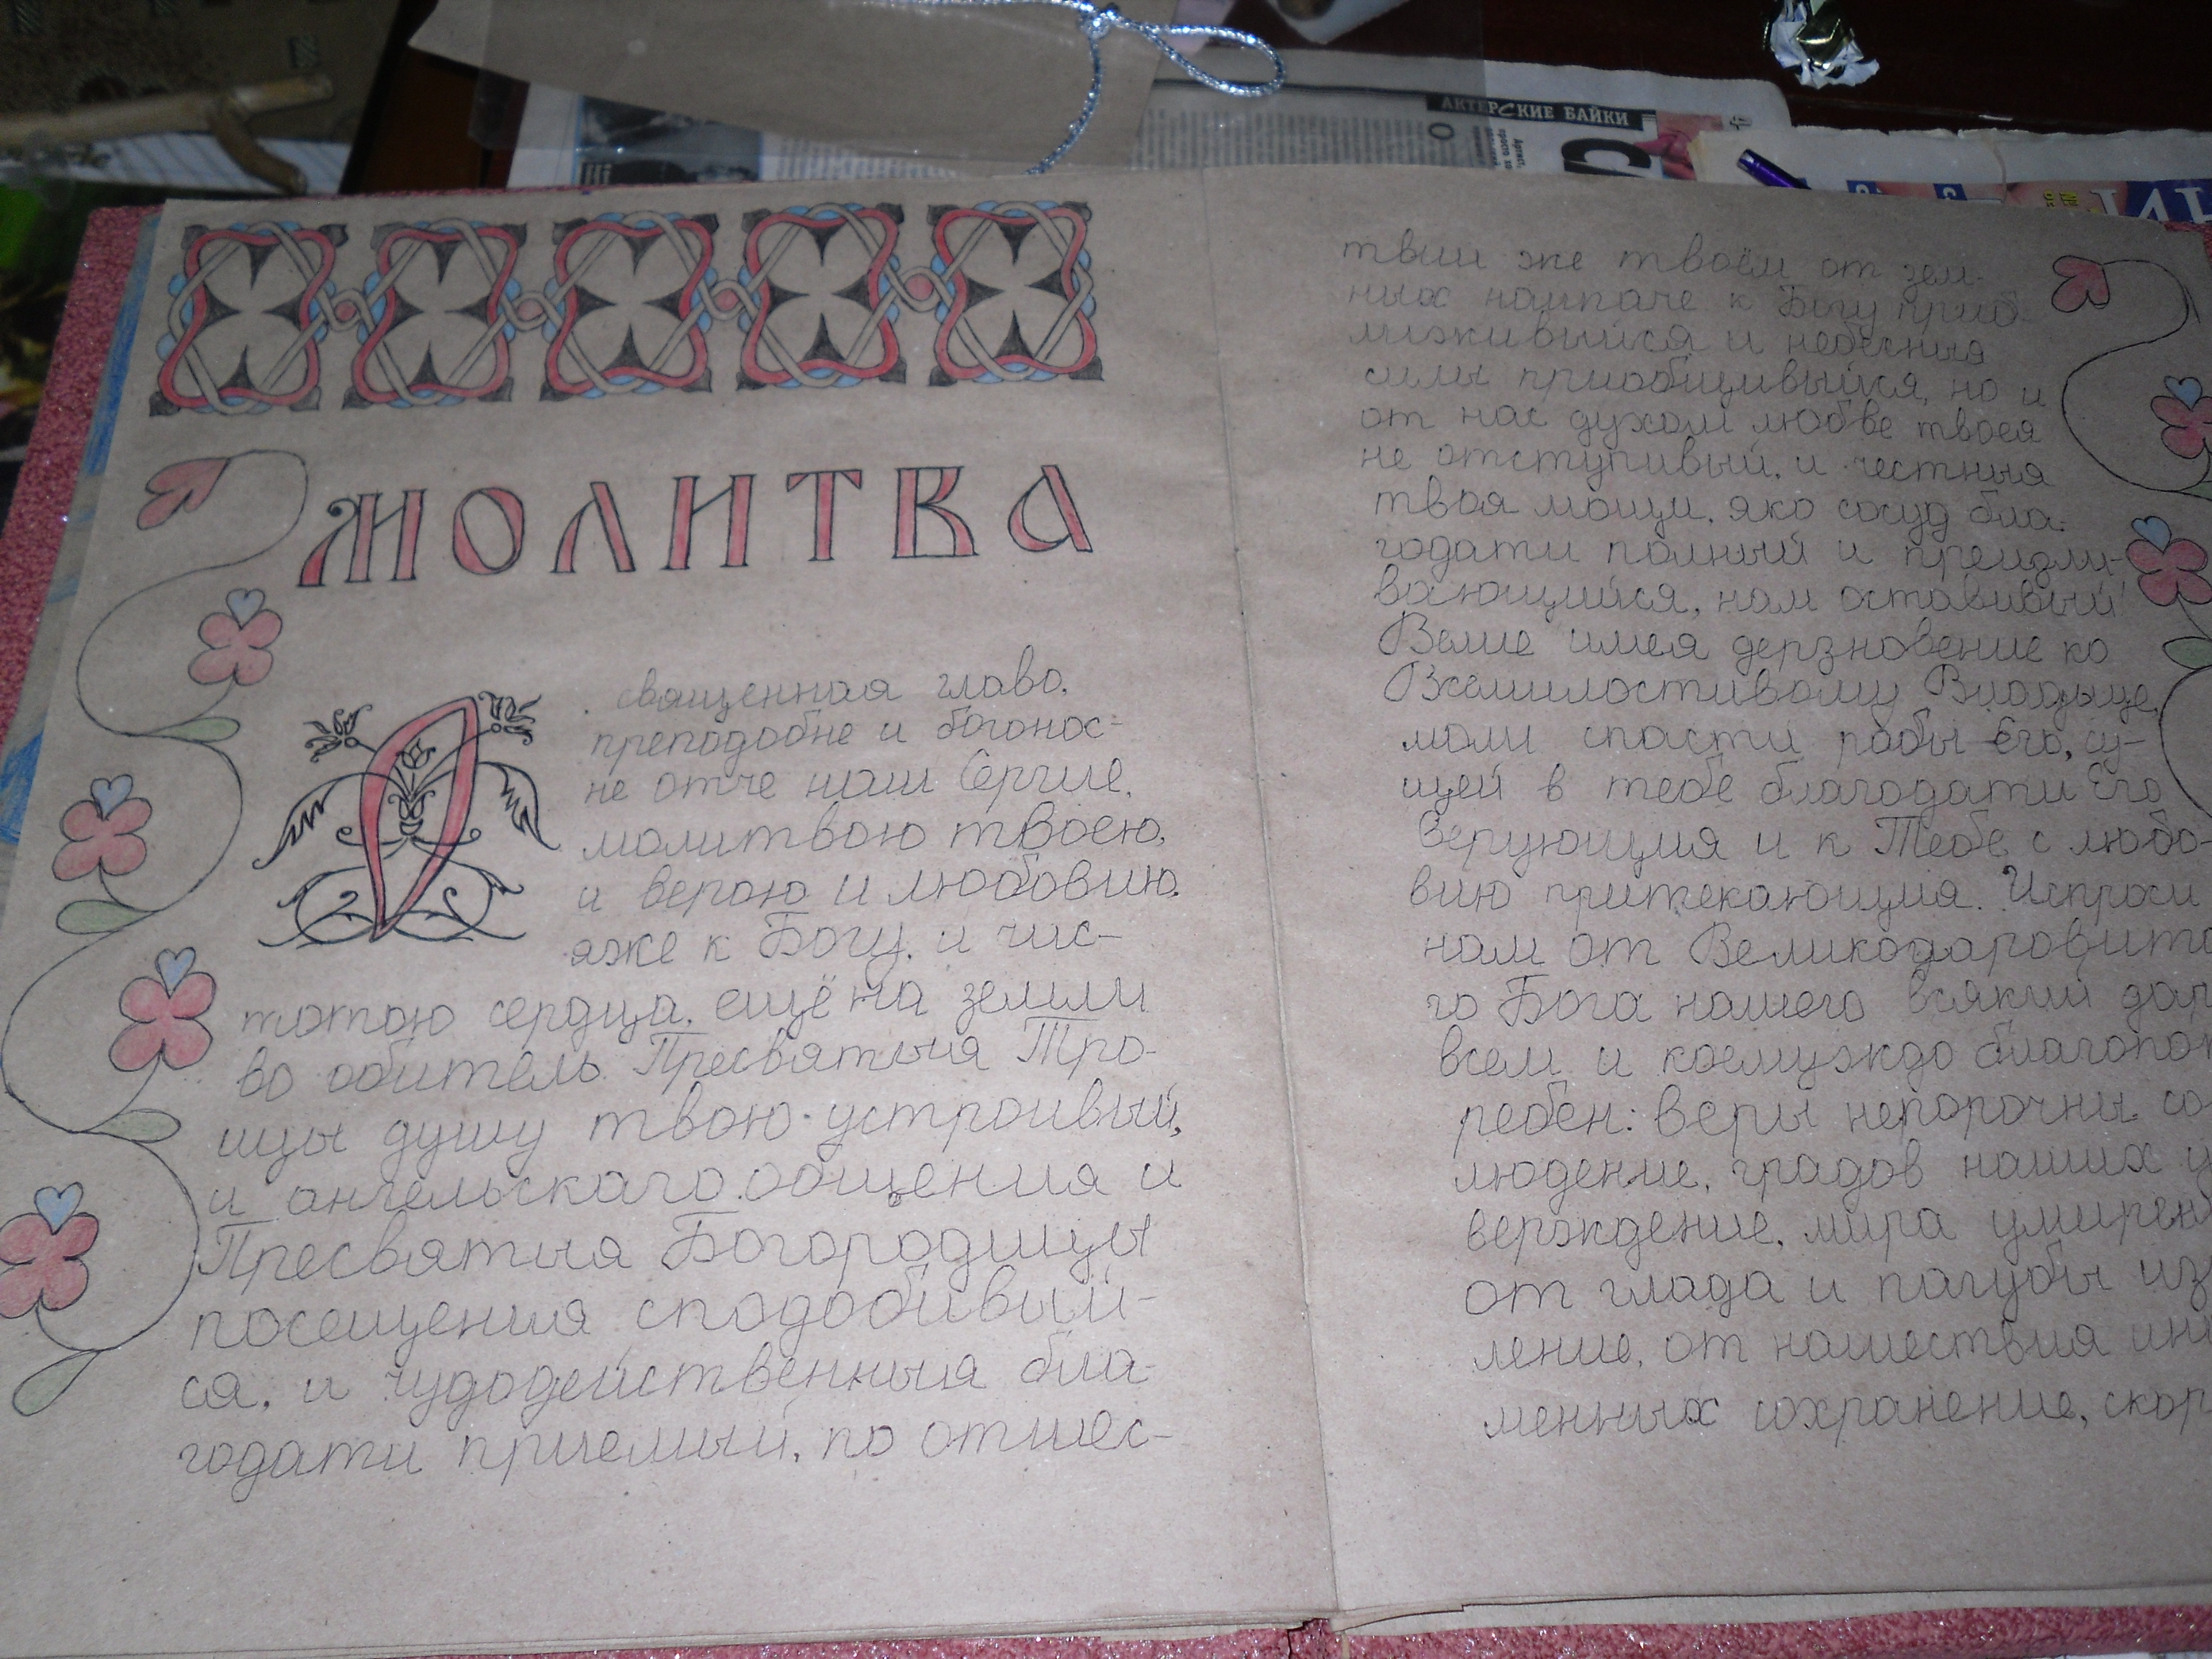 АКТЕРСКИЕ БАЙКИ
МОЛИТВА
О священная главо,
преподобне и богонос-
не отче наш Сергие,
молитвою твоею,
и верою и любовию,
яже к Богу, и чис-
тотою сердца, ещё на земли
во обитель Пресвятыя Тро-
ицы душу твою устроивый,
и ангельскаго общения и
Пресвятыя Богородицы
посещения сподобивый-
ся, и чудодейственныя бла-
годати приемый, по отшес-
твии же твоём от зем-
ных наипаче к Богу приб-
лижившийся и небесныя
силы приобщивыйся, но и
от нас духом любве твоея
не отступивый, и честныя
твоя мощи, яко сосуд бла-
годати полный и преизли-
вающийся, нам оставивый!
Велие имея дерзновение ко
Всемилостивому Владыце,
моли спасти рабы Его, су-
щей в тебе благодати Его
верующия и к Тебе с любо-
вию притекающия. Испроси
нам от Великодаровито
го Бога нашего всякий дар
всем и коемуждо благопот
ребен: веры непорочны со
людение, градов наших у
верждение, мира умирен
от глада и пагубы из
ление, от нашествия ин
менных сохранение, скор